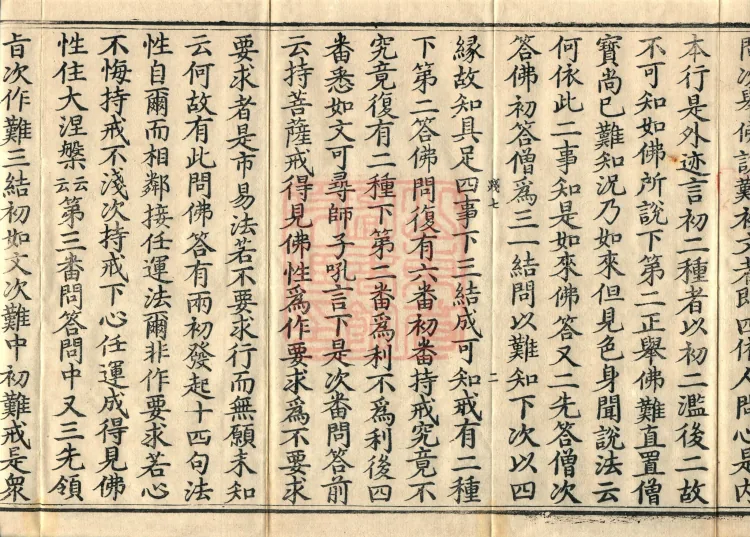 本行是外迹言初二種者以初二濫後二故
不可知如佛所說下第二正舉佛難直置僧
寶尚巳難知況乃如來但見色身聞說法云
何依此二事知是如來佛答又二先答僧次
答佛初答僧爲三一結問以難知下次以四
緣故知具足四事下三結成可知戒有二種
下第二答佛問復有六番初番持戒究竟不
究竟復有二種下第二番爲利不爲利後四
番悉如文可尋師子吼言下是次番問答前
云持菩薩戒得見佛性爲作要求爲不要求
要求者是市易法若不要求行而無願未知
云何故有此問佛答有兩初發起十四句法
性自爾而相鄰接任運法爾非作要求若心
不悔持戒不淺次持戒下心任運成得見佛
性住大涅槃云云第三番問答問中又三先領
旨次作難三結初如文次難中初難戒是衆